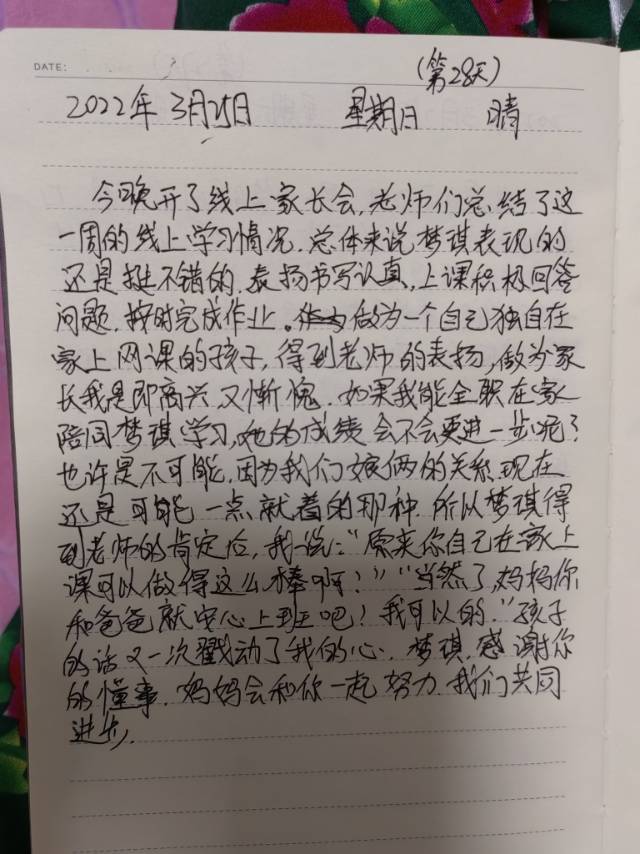 DATE:
(第28天)
2022年 3月25日 星期日 晴
今晚开了线上家长会,老师们总结了这
一周的线上学习情况.总体来说梦琪表现的
还是挺不错的,表扬书写认真,上课积极回答
问题,按时完成作业。做为一个自己独自在
家上网课的孩子,得到老师的表扬,做为家
长我是即高兴又惭愧.如果我能全职在家
陪同梦琪学习,她的成绩会不会更进一步呢?
也许是不可能,因为我们娘俩的关系现在
还是可能一点就着的那种.所以梦琪得
到老师的肯定后,我说:“原来你自己在家上
课可以做得这么棒啊!”“当然了,妈妈你
和爸爸就安心上班吧!我可以的.”孩子
的话又一次戳动了我的心.梦琪,感谢你
的懂事.妈妈会和你一起努力.我们共同
进步.